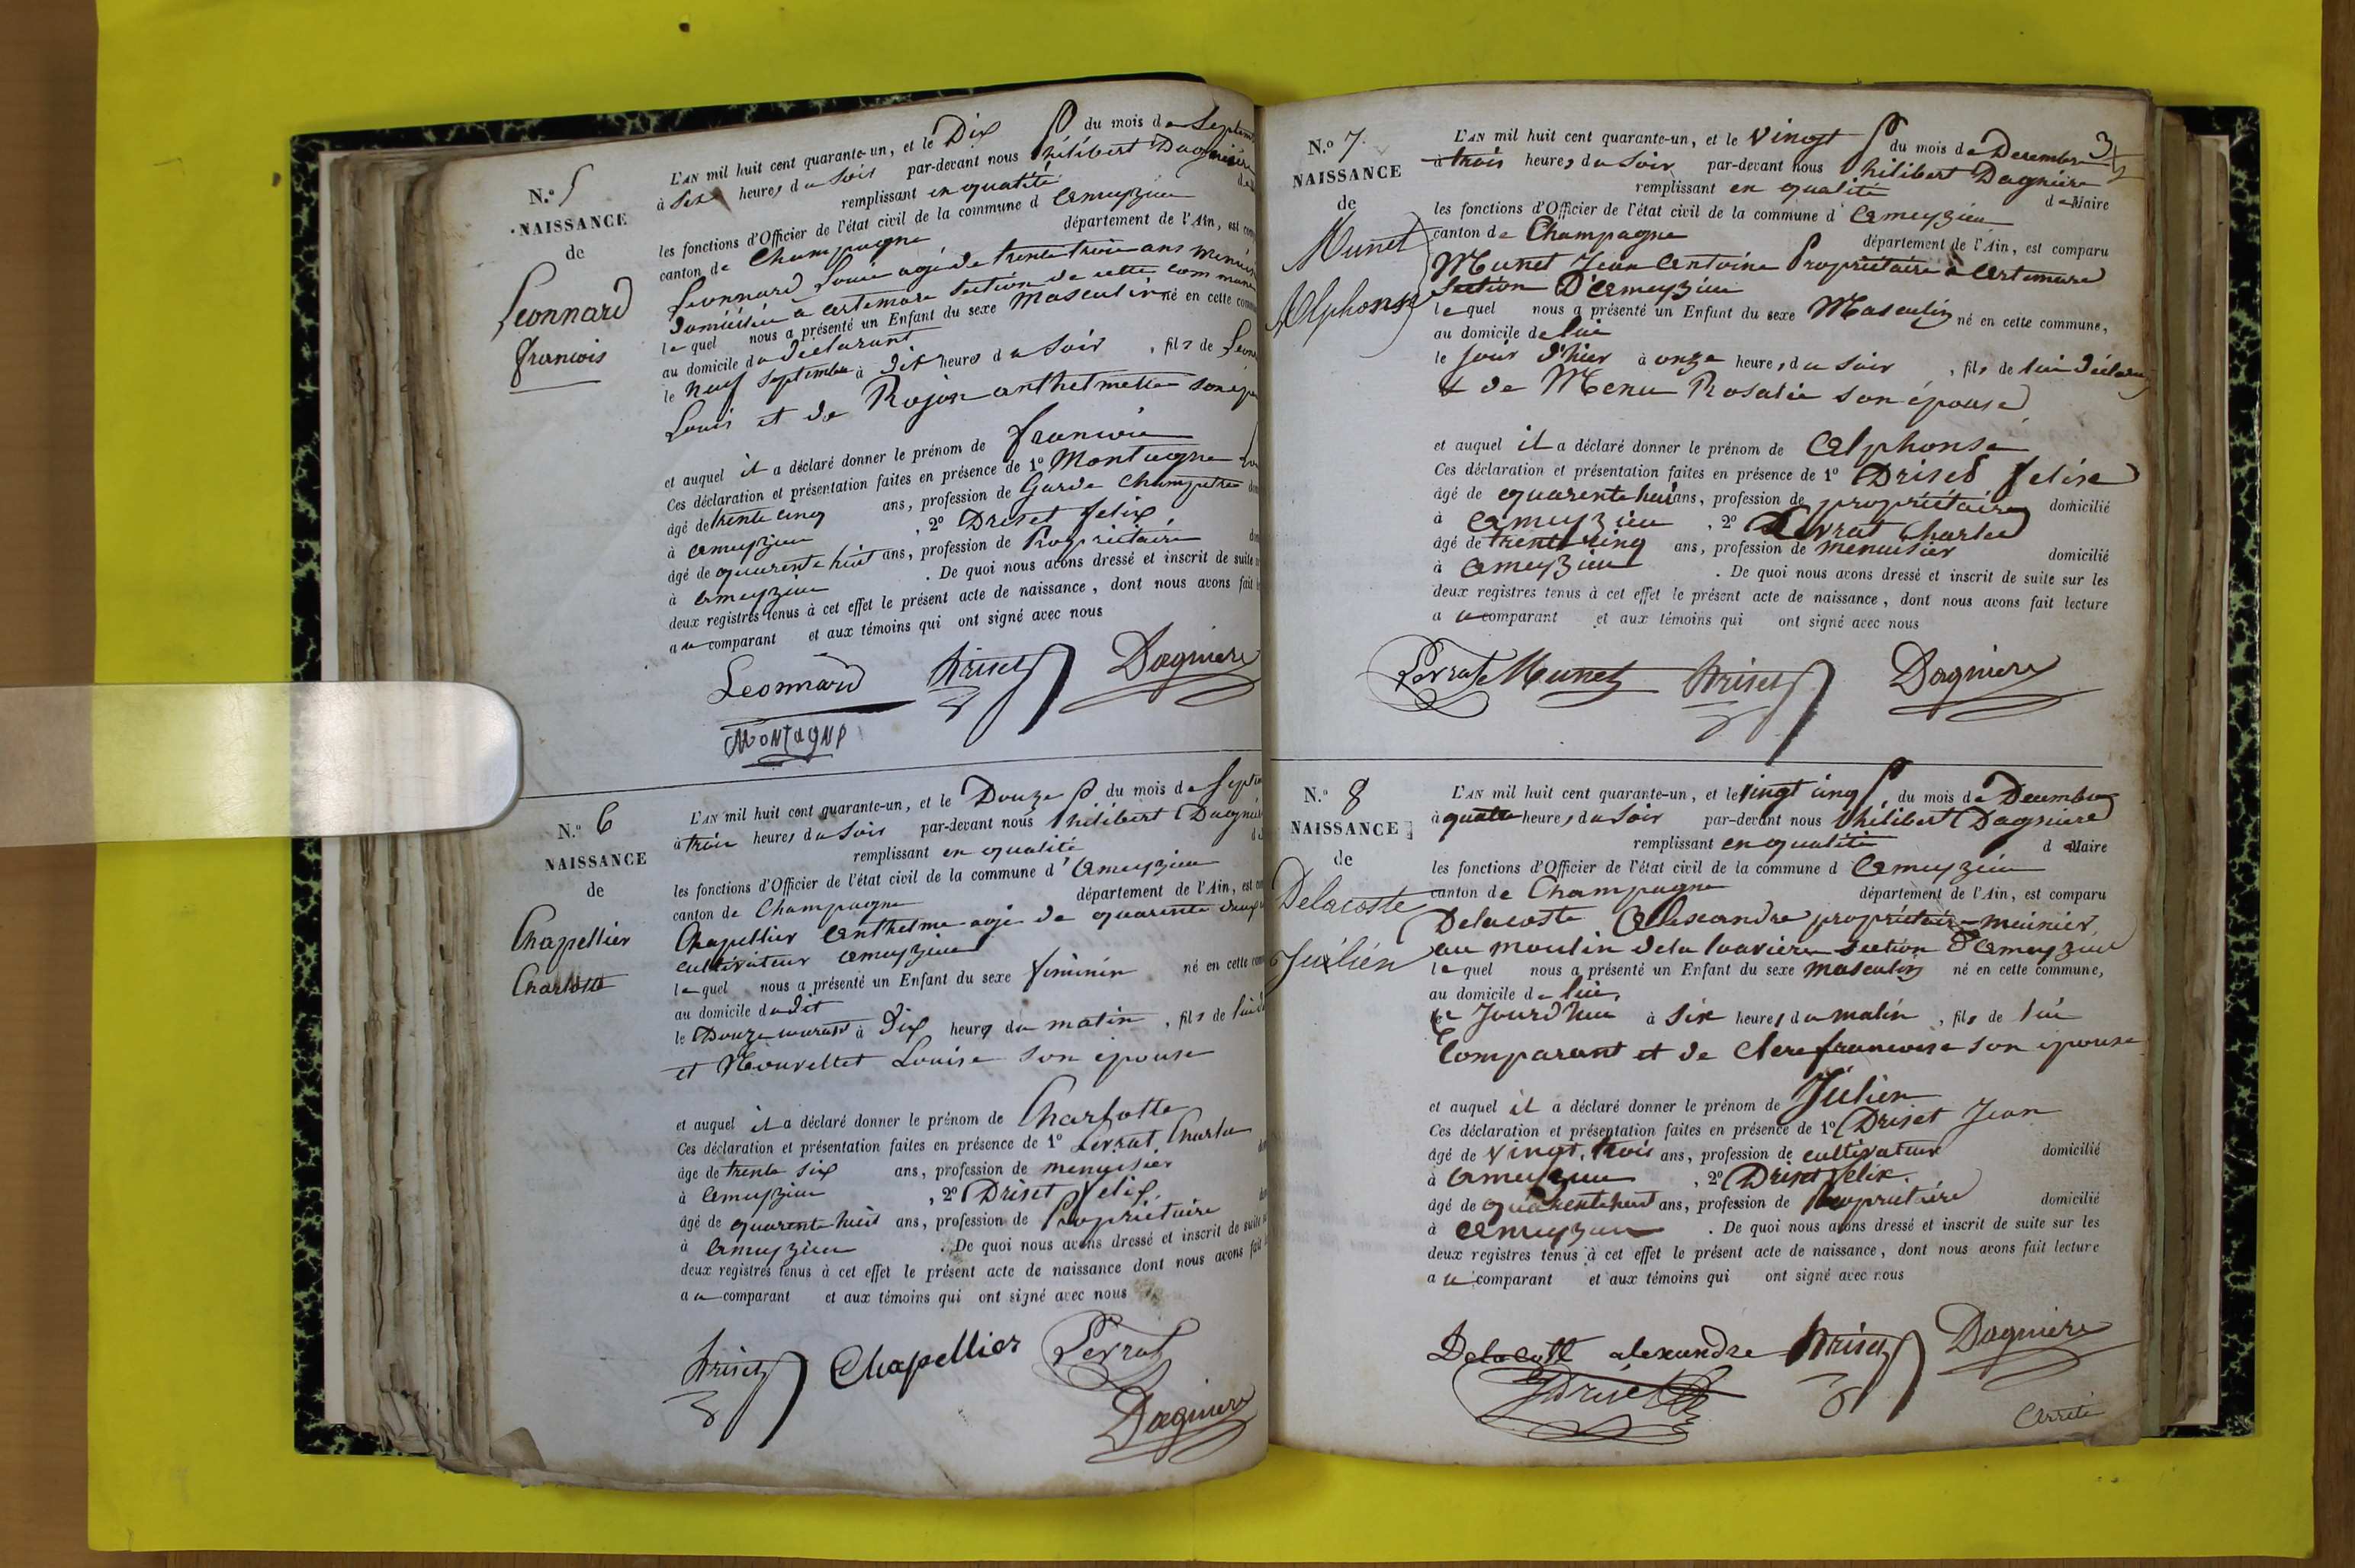 N.º 5
NAISSANCE
de
Leonnard
francois
L'AN mil huit cent quarante-un, et le Dix du mois de Septem
à Six heures du Soir par-devant nous Philibert Dagnière
remplissant en qualité de
les fonctions d'Officier de l'état civil de la commune d ameyzieu
canton de Champagne département de l'Ain, est com
Leonnard Louis agé de trente trois ans menuis
domicilié a artemare Section de cette commune
lequel nous a présenté un Enfant du sexe Masculin né en cette comm
au domicile du declarant
le neuf Septembre à dix heures du Soir , fils de Leon
Louis et de Rojon anthelmette son ep
et auquel il a déclaré donner le prénom de francois
Ces déclaration et présentation faites en présence de 1º Montagne
âgé de trente cinq ans, profession de Garde champetre dom
à ameyzieu , 2º Driset felix
âgé de quarente huit ans, profession de Propriétaire dom
à ameyzieu . De quoi nous avons dressé et inscrit de suite su
deux registres tenus à cet effet le présent acte de naissance, dont nous avons fait le
au comparant et aux témoins qui ont signé avec nous
Leonnard Driset Dagniere
MONTAGNE
N.º 6
NAISSANCE
de
Chapellier
Charlotte
L'AN mil huit cent quarante-un, et le Douze du mois de Septem
à trois heures du Soir par-devant nous Philibert Dagnière
remplissant en qualité de
les fonctions d'Officier de l'état civil de la commune d'ameyzieu
canton de Champagne département de l'Ain, est com
Chapellier anthelme agé de quarente deux
cultivateur ameyzieu
lequel nous a présenté un Enfant du sexe feminin né en cette com
au domicile du dit
le Douze courant à Dix heures du matin , fils de lui
et Nouvellet Louise son épouse
et auquel il a déclaré donner le prénom de Charlotte
Ces déclaration et présentation faites en présence de 1º Levrat Charles
âge de trente six ans, profession de menuisier dom
à ameyzieu , 2º Driset felix
âgé de quarente huit ans, profession de Propriétaire dom
à ameyzieu . De quoi nous avons dressé et inscrit de suite su
deux registres tenus à cet effet le présent acte de naissance dont nous avons fait
au comparant et aux témoins qui ont signé avec nous
Driset Chapellier Levrat
Dagniere
3
N.º 7
NAISSANCE
de
Munet
Alphonse
L'AN mil huit cent quarante-un, et le vingt du mois de Decembre
à trois heures du Soir par-devant nous Philibert Dagnière
remplissant en qualité de Maire
les fonctions d'Officier de l'état civil de la commune d'ameyzieu
canton de Champagne département de l'Ain, est comparu
Munet Jean Antoine Propriétaire a artemare
Section D'ameyzieu
lequel nous a présenté un Enfant du sexe Masculin né en cette commune,
au domicile de lui
le jour d'hier à onze heures du Soir , fils de lui déclarant
et de Menu Rosalie son épouse
et auquel il a déclaré donner le prénom de alphonse
Ces déclaration et présentation faites en présence de 1º Driset felix
âgé de quarente huit ans, profession de propriétaire domicilié
à ameyzieu , 2º Levrat Charles
âgé de trente cinq ans, profession de menuisier domicilié
à ameyzieu . De quoi nous avons dressé et inscrit de suite sur les
deux registres tenus à cet effet le présent acte de naissance, dont nous avons fait lecture
au comparant et aux témoins qui ont signé avec nous
Levrat Munet Driset Dagniere
N.º 8
NAISSANCE
de
Delacoste
Juilien
L'AN mil huit cent quarante-un, et le vingt cinq du mois de Decembre
à quatre heures du Soir par-devant nous Philibert Dagnière
remplissant en qualité de Maire
les fonctions d'Officier de l'état civil de la commune d ameyzieu
canton de Champagne département de l'Ain, est comparu
Delacoste Alexandre propriétaire-meunier
au moulin dela lavriere section d'ameyzieu
lequel nous a présenté un Enfant du sexe masculin né en cette commune,
au domicile de lui,
le Jourd'hui à Six heures du matin , fils de lui
Comparant et de Clere francoise son épouse
et auquel il a déclaré donner le prénom de Julien
Ces déclaration et présentation faites en présence de 1º Driset Jean
âgé de vingt trois ans, profession de cultivateur domicilié
à ameyzieu , 2º Driset felix.
âgé de quarente huit ans, profession de Propriétaire domicilié
à ameyzieu . De quoi nous avons dressé et inscrit de suite sur les
deux registres tenus à cet effet le présent acte de naissance, dont nous avons fait lecture
au comparant et aux témoins qui ont signé avec nous
Delacoste alexandre Driset Dagniere
Driset
Arrêté